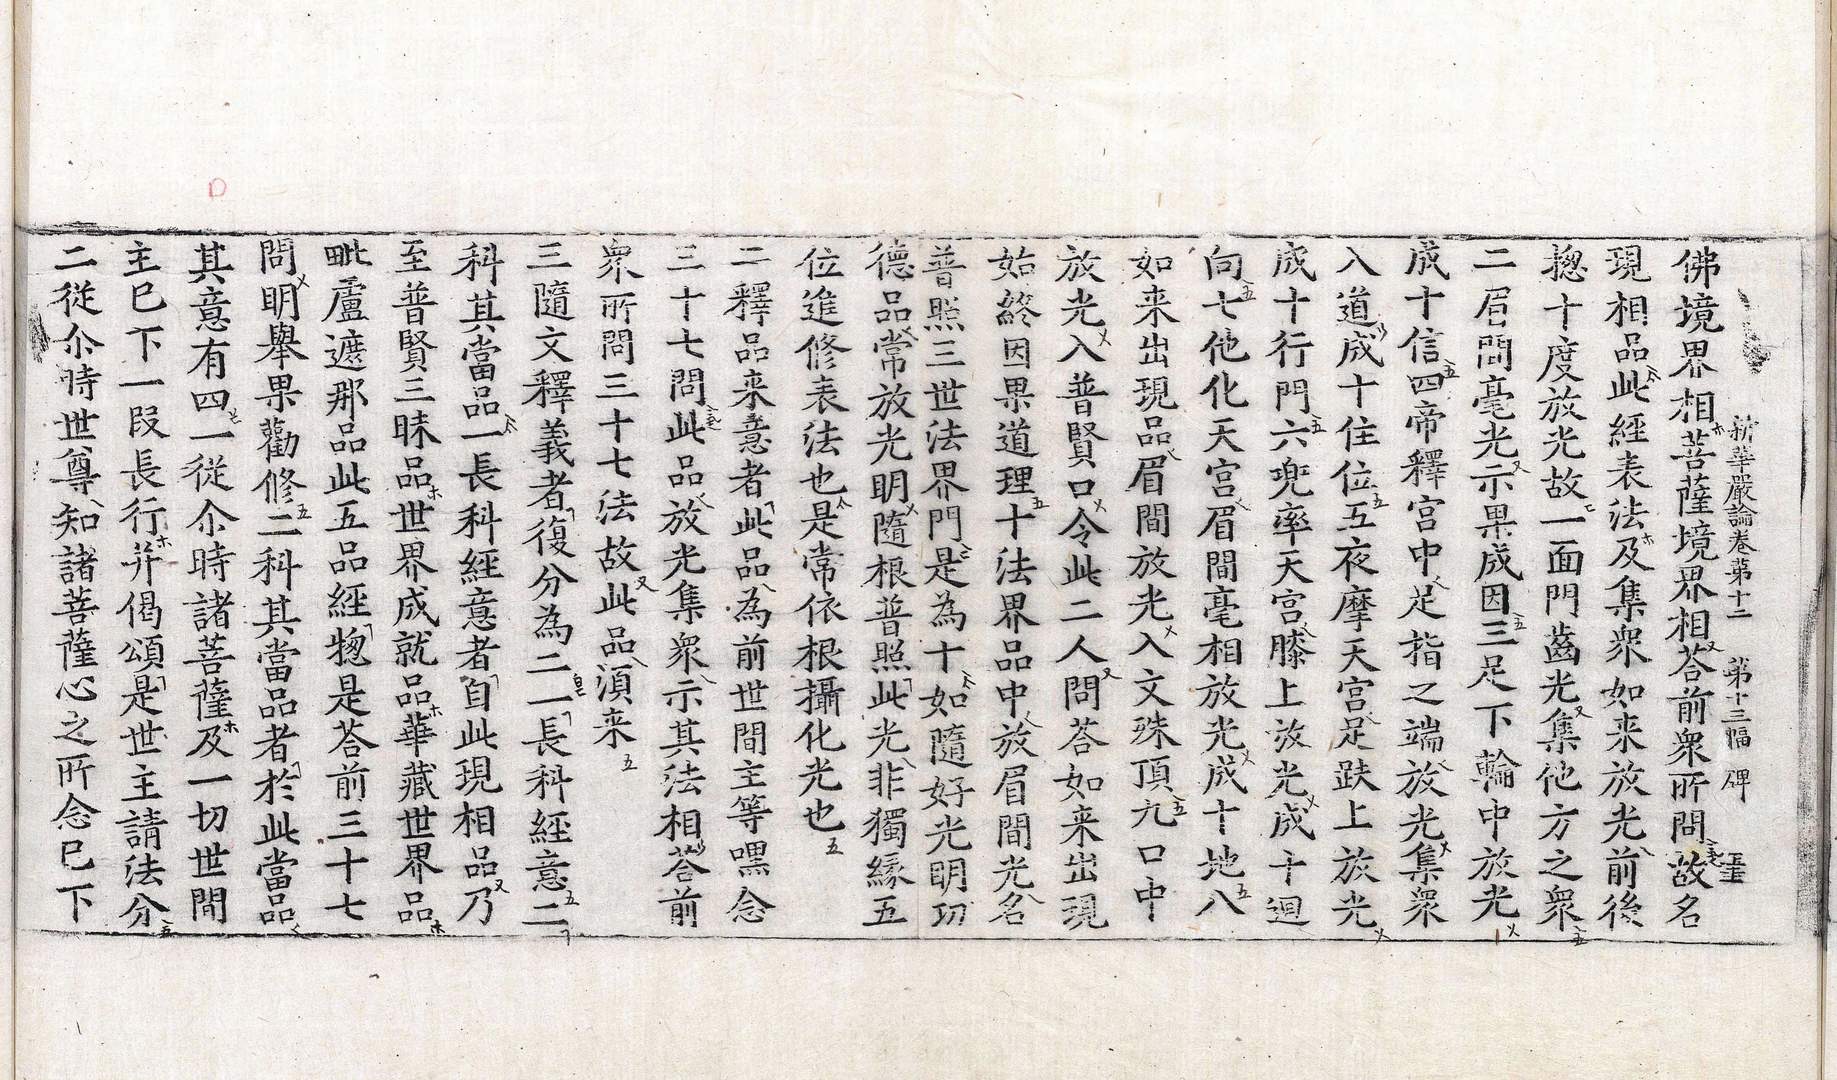 新華嚴論卷第十二　第十三幅　碑
佛境界相菩薩境界相荅前衆所問故名
現相品此經表法及集衆如来放光前後
揔十度放光故一面門齒光集他方之衆
二眉間毫光示果成因三足下輪中放光
成十信四帝釋宮中足指之端放光集衆
入道成十住位五夜摩天宮足趺上放光
成十行門六兜率天宮膝上放光成十迴
向七他化天宮眉間毫相放光成十地八
如来出現品眉間放光入文殊頂九口中
放光入普賢口令此二人問荅如来出現
始終因果道理十法界品中放眉間光名
普照三世法界門是為十如隨好光明功
德品常放光明隨根普照此光非獨緣五
位進修表法也是常依根攝化光也
二釋品来意者此品為前世間主等嘿念
三十七問此品放光集衆示其法相荅前
衆所問三十七法故此品湏来
三隨文釋義者復分為二一長科經意二
科其當品一長科經意者自此現相品乃
至普賢三昧品世界成就品華藏世界品
毗盧遮那品此五品經揔是荅前三十七
問明舉果勸修二科其當品者於此當品
其意有四一從尒時諸菩薩及一切世間
主已下一段長行并偈頌是世主請法分
二從尒時世尊知諸菩薩心之所念已下